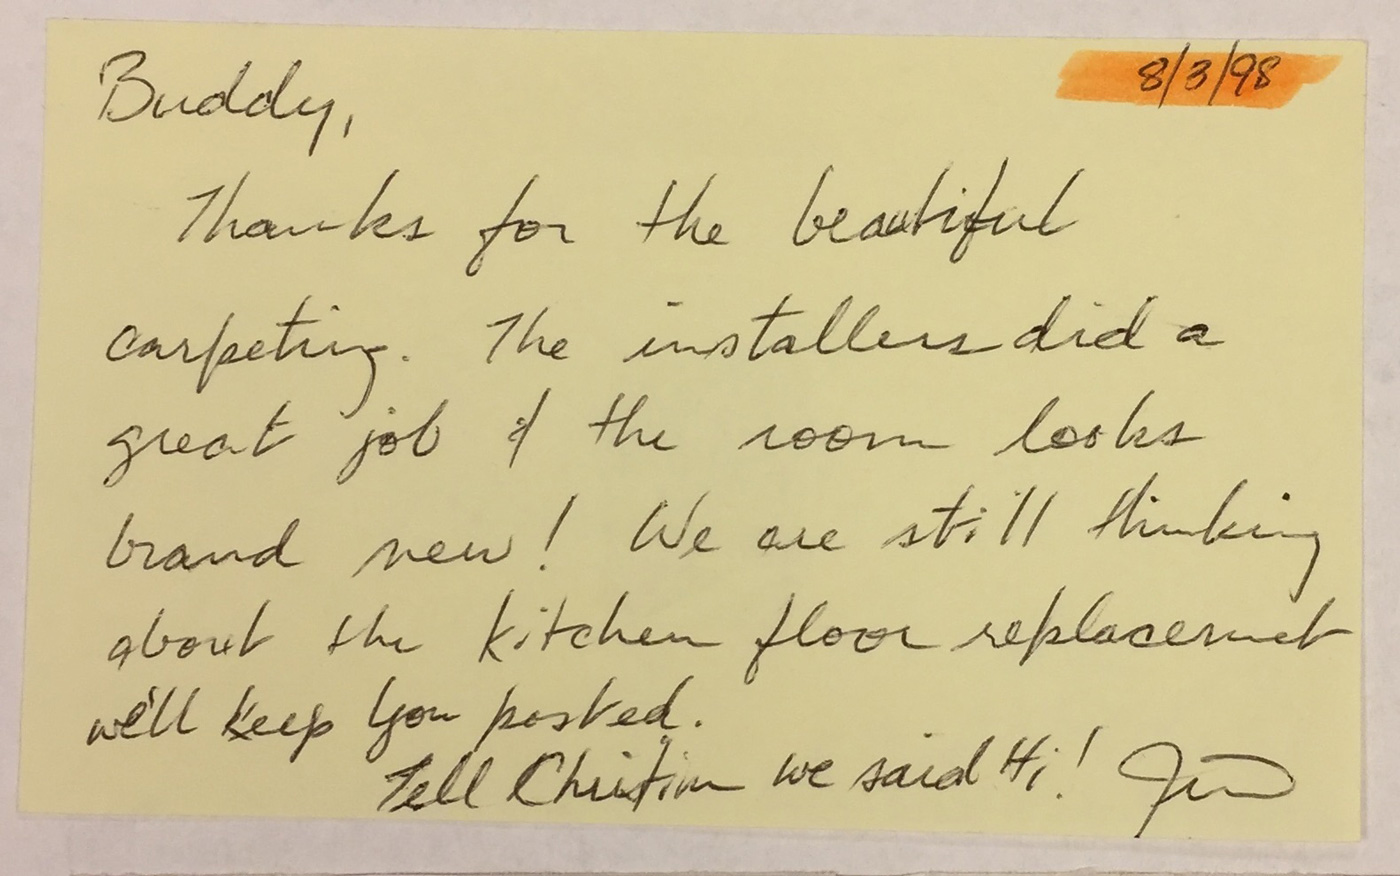 8/3/98
Buddy,
Thanks for the beautiful
carpeting. The installers did a
great job & the room looks
brand new! We are still thinking
about the kitchen floor replacemet
we'll keep you posted.
Tell we said Hi!